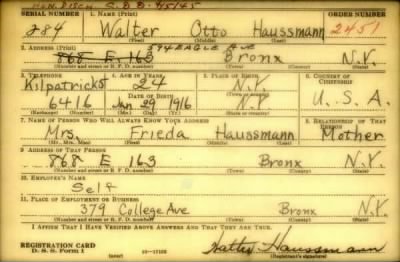 HON. DISCH. S.B.B. 45145
SERIAL NUMBER 1. NAME (Print) ORDER NUMBER
284 Walter Otto Haussmann 2451
(First) (Middle) (Last)
2. ADDRESS (Print) 594 EAGLE AVE
868 E. 163 Bronx N.Y.
(Number and street or R. F. D. number) (Town) (County) (State)
3. TELEPHONE 4. AGE IN YEARS 5. PLACE OF BIRTH 6. COUNTRY OF CITIZENSHIP
Kilpatrick5 24 N.Y.
6416 Jan 29 1916 N.Y. U.S.A.
(Exchange) (Number) (Mo.) (Day) (Yr.)
7. NAME OF PERSON WHO WILL ALWAYS KNOW YOUR ADDRESS 8. RELATIONSHIP OF THAT PERSON
Mrs. Frieda Haussmann Mother
(Mr., Mrs., Miss) (First) (Middle) (Last)
9. ADDRESS OF THAT PERSON
868 E. 163 Bronx N.Y.
(Number and street or R. F. D. number) (Town) (County) (State)
10. EMPLOYER'S NAME
Self
11. PLACE OF EMPLOYMENT OR BUSINESS
379 College Ave Bronx N.Y.
(Number and street or R. F. D. number) (Town) (County) (State)
I AFFIRM THAT I HAVE VERIFIED ABOVE ANSWERS AND THAT THEY ARE TRUE.
REGISTRATION CARD
D. S. S. Form 1 Walter Haussmann
(Registrant's signature)